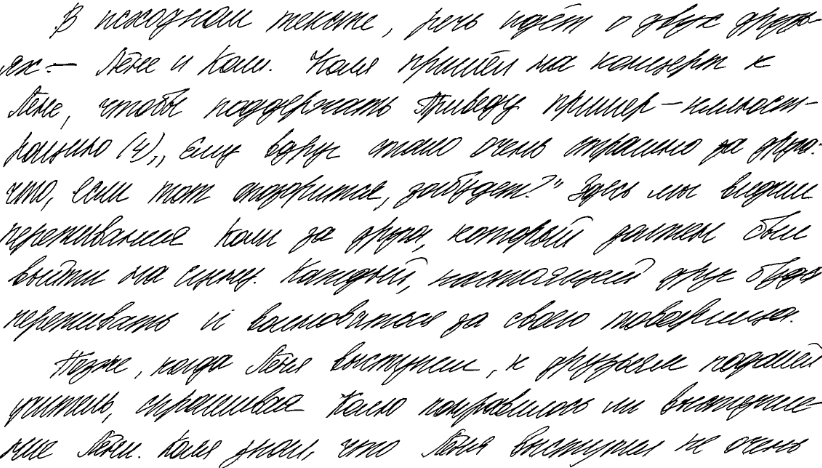 В исходном тексте, речь идёт о двух друзь-
ях:– Лёне и Коли. Коля пришёл на концерт к
Лёне, чтобы поддержать Приведу пример – иллюст-
рацию (4) „Ему вдруг стало очень страшно за друга:
что, если тот опозорится, забудет?" Здесь мы видим
переживания Коли за друга, который должен был
выйти на сцену. Каждый, настоящей друг будет
переживать и волноваться за своего товарища.
Позже, когда Лёня выступил, к друзьям подошёл
учитель, спрашивая Колю понравилось ли выступле-
ние Лёни. Коля знал, что Лёня выступил не очень